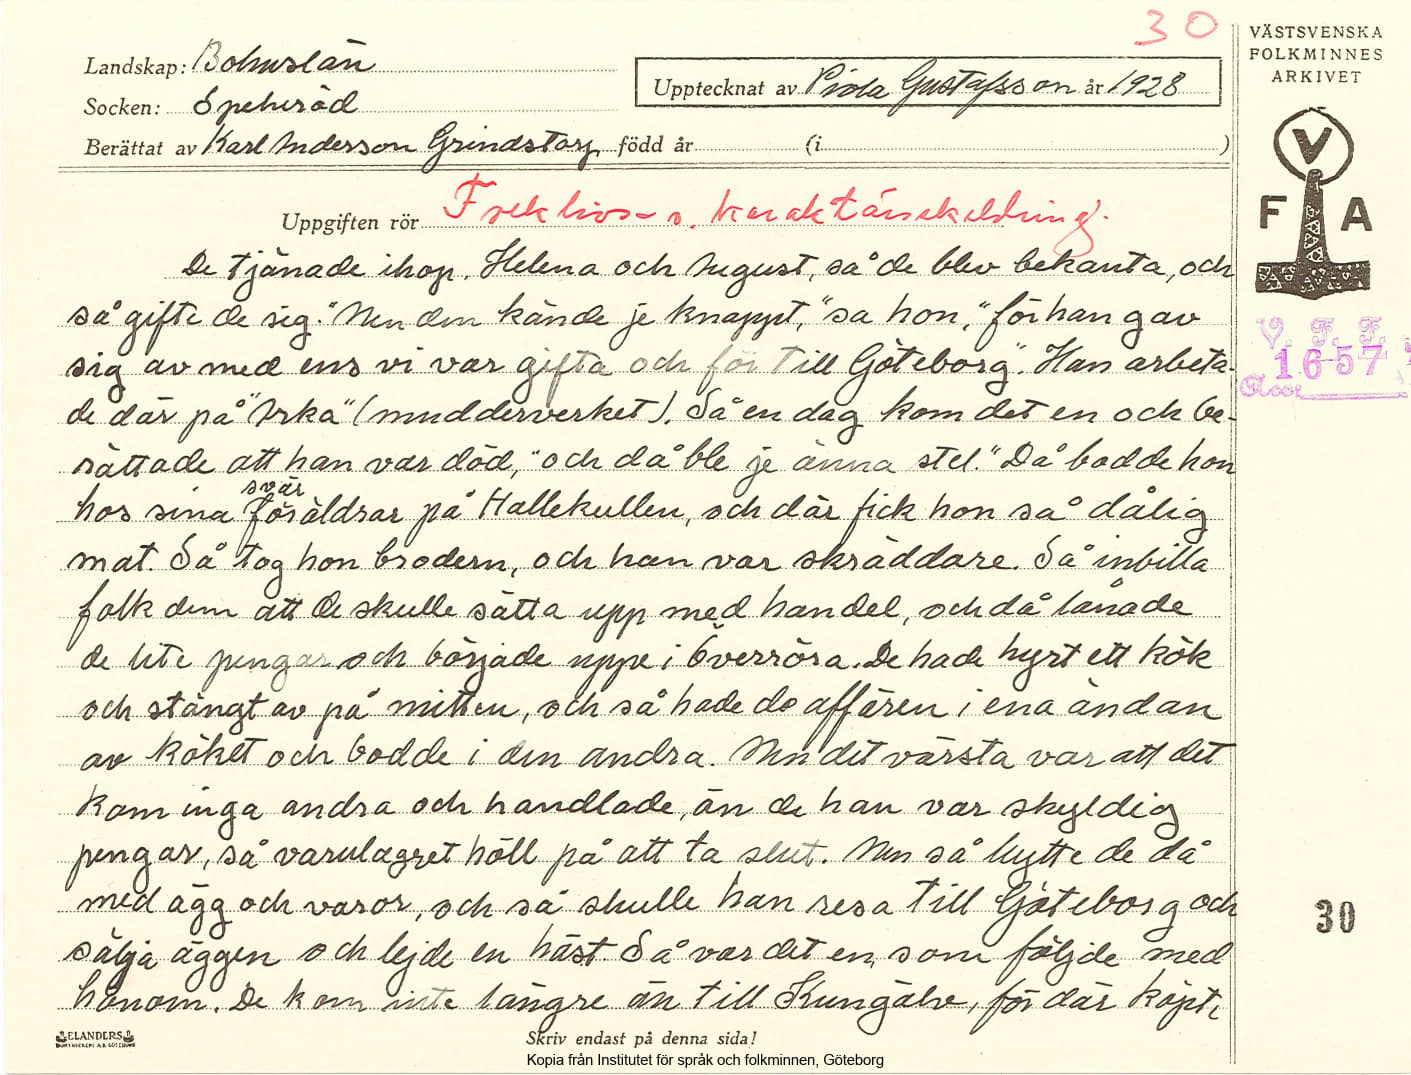 30
VÄSTSVENSKA
FOLKMINNES
ARKIVET
Landskap: Bohuslän
Upptecknat av Viola Gustafsson år 1928
Socken: Spekeröd
Berättat av Karl Anderson Grindstorp född år (i )
V
F A
Uppgiften rör Freklivs- o. karaktärsskildring.
De tjänade ihop, Helena och August, så de blev bekanta, och
så gifte de sig. "Men den kände je knappt," sa hon, "för han gav
sig av med ens vi var gifta och för till Göteborg". Han arbeta-
de där på "Arka" (mudderverket). Så en dag kom det en och be-
rättade att han var död, "och då ble je änna stel." Då bodde hon
hos sina svärföräldrar på Hallekullen, och där fick hon så dålig
mat. Så tog hon brodern, och han var skräddare. Så inbilla
folk dem att de skulle sätta upp med handel, och då lånade
de lite pengar och började uppe i Överröra. De hade hyrt ett kök
och stängt av på mitten, och så hade de affären i ena ändan
av köket och bodde i den andra. Men det värsta var att det
kom inga andra och handlade, än de han var skyldig
pengar, så varulagret höll på att ta slut. Men så bytte de då
med ägg och varor, och så skulle han resa till Göteborg och
sälja äggen och lejde en häst. Så var det en, som följde med
honom. De kom inte längre än till Kungälv, för där köpte
V. F. F.
1657
Acc.
30
ELANDERS
BOKTRYCKERI A.B. GÖTEBORG
Skriv endast på denna sida!
Kopia från Institutet för språk och folkminnen, Göteborg